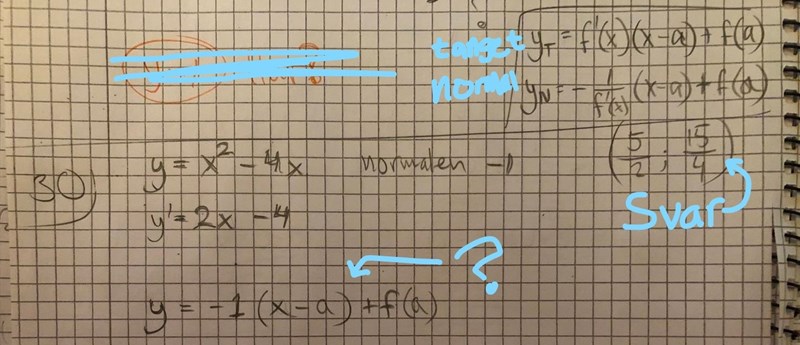 tanget y_T = f'(x)(x-a)+f(a)
normal y_N = -1/f'(x) (x-a)+f(a)
30) y = x² - 4x normalen -1 (5/2 ; 15/4)
Svar
y' = 2x - 4
?
y = -1 (x-a) + f(a)